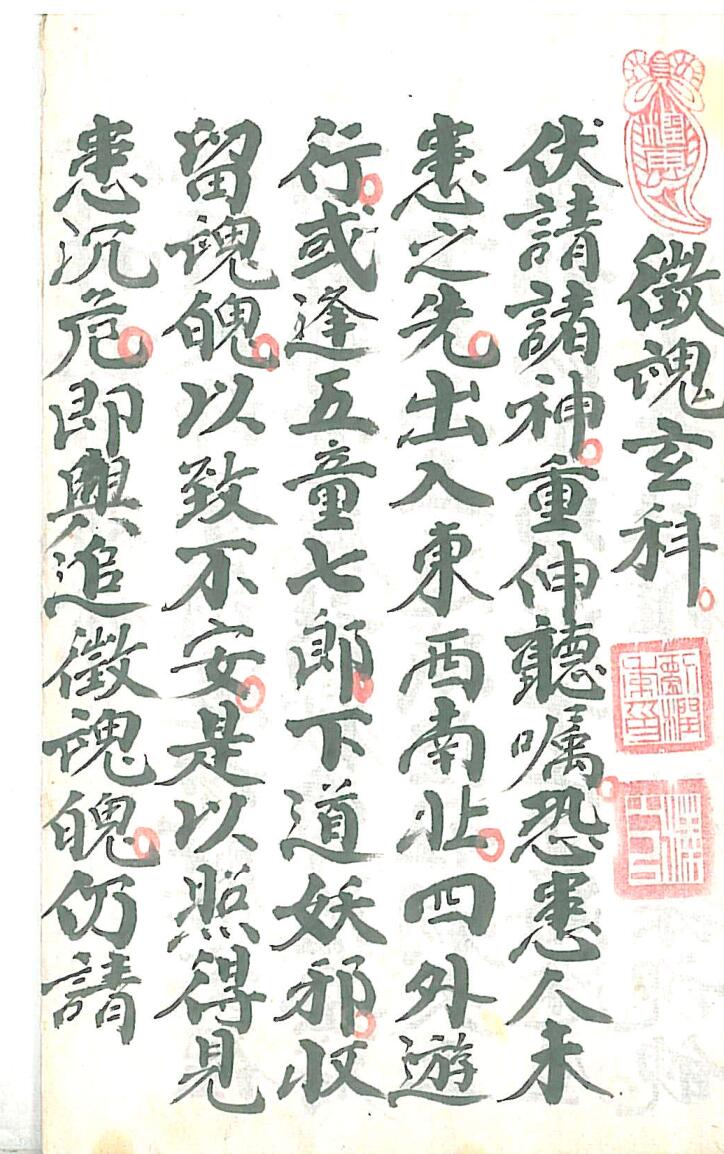 徵魂玄科
伏請諸神重伸聽囑恐患人未
患之先出入東西南北四外遊
行或逢五童七郎下道妖邪收
留魂魄以致不安是以照得見
患沉危即與追徵魂魄仍請